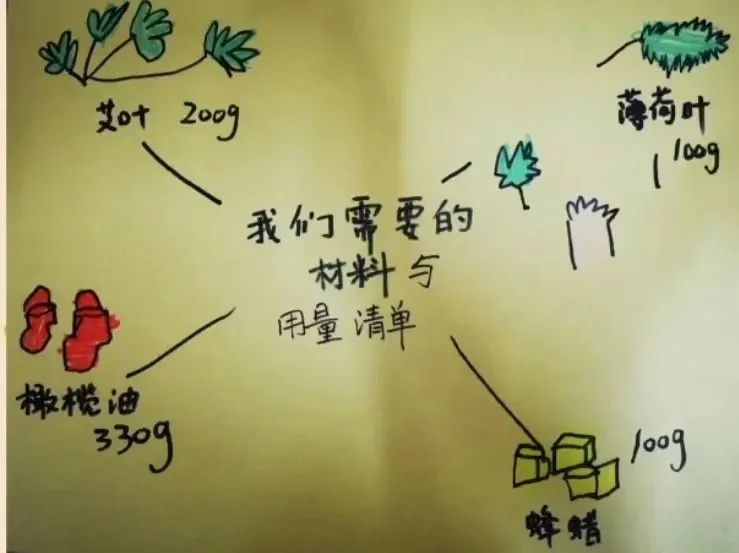 艾叶 200g
薄荷叶
100g
我们需要的
材料与
用量清单
橄榄油
330g
100g
蜂蜡